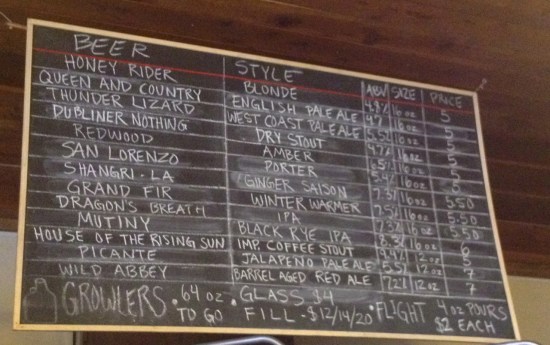 BEER STYLE ABV SIZE PRICE
HONEY RIDER BLONDE 4.8% 16oz 5
QUEEN AND COUNTRY ENGLISH PALE ALE 16oz 5
THUNDER LIZARD WEST COAST PALE ALE 5.5% 16oz 5
DUBLINER NOTHING DRY STOUT 16oz 5
REDWOOD AMBER 16oz 5
SAN LORENZO PORTER 16oz 5
SHANGRI-LA GINGER SAISON 16oz 5.50
GRAND FIR WINTER WARMER 7.5% 16oz 5.50
DRAGON'S BREATH IPA 16oz 5.50
MUTINY BLACK RYE IPA 16oz 6
HOUSE OF THE RISING SUN IMP. COFFEE STOUT 12oz
PICANTE JALAPEÑO PALE ALE 5.5% 12oz 7
WILD ABBEY BARREL AGED RED ALE 12oz 7
GROWLERS • 64 OZ TO GO • GLASS $4 FILL - $12/14/20 • FLIGHT 4 OZ POURS $2 EACH